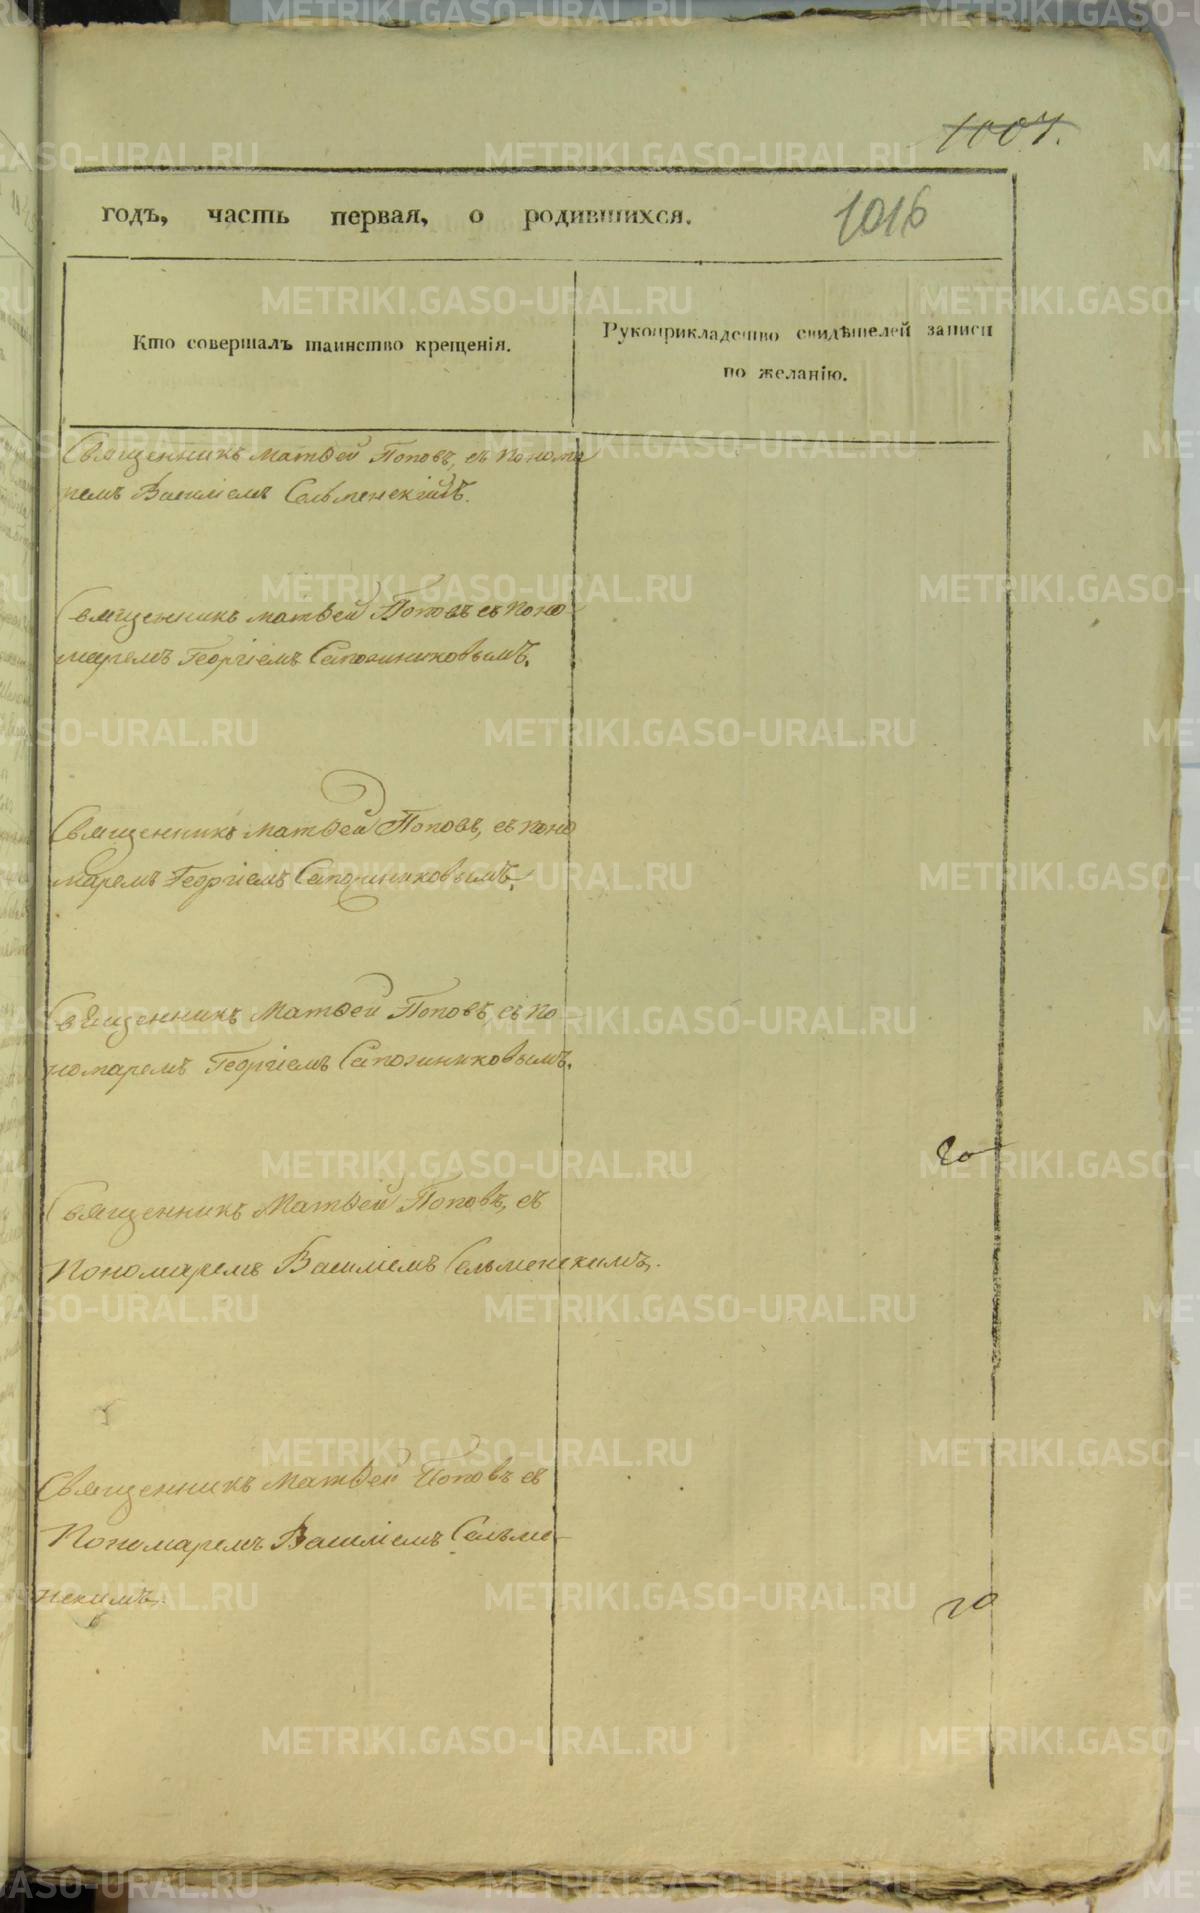 1007.
годъ, часть первая, о родившихся.
1016
Кто совершалъ таинство крещенія.
Рукоприкладство свидѣтелей записи
по желанію.
Священникъ Матѳей Поповъ, съ понома
ремъ Василіемъ Сельменскимъ.
Священникъ Матѳей Поповъ съ Поно
маремъ Георгіемъ Сапожниковымъ.
Священникъ Матѳей Поповъ, съ поно
маремъ Георгіемъ Сапожниковымъ.
Священникъ Матѳей Поповъ, съ По
номаремъ Георгіемъ Сапожниковымъ.
20
Священникъ Матѳей Поповъ, съ
Пономаремъ Василіемъ Сельменскимъ.
Священникъ Матѳей Поповъ съ
Пономаремъ Василіемъ Сельме-
нскимъ.
20
METRIKI.GASO-URAL.RU